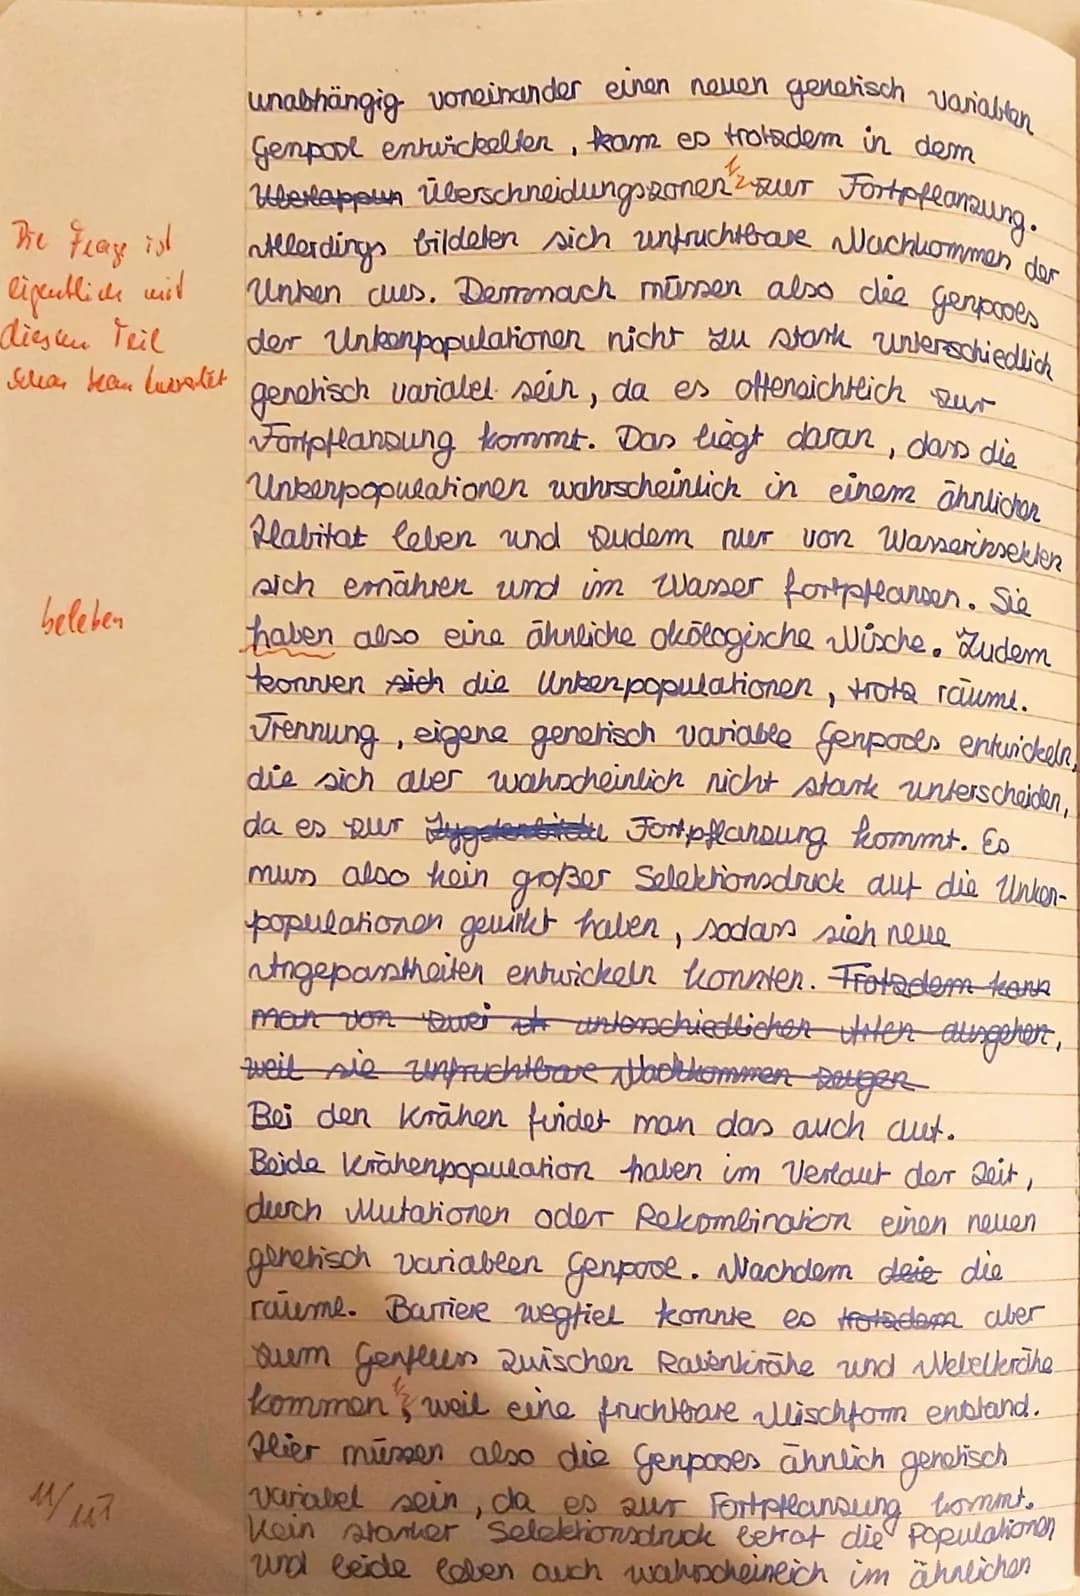 unabhängig voneinander einen neuen genetisch variablen
Genpool entwickelten, kam es trotzdem in dem
Überlappun Überschneidungszonen ½ zur Fortpflanzung.
Allerdings bildeten sich unfruchtbare Nachkommen der
Unken aus. Demmnach müssen also die Genpools
der Unkenpopulationen nicht zu stark unterschiedlich
genetisch variabel sein, da es offensichtlich zur
Fortpflanzung kommt. Das liegt daran, dass die
Unkenpopulationen wahrscheinlich in einem ähnlichen
Habitat leben und zudem nur von Wasserinsekten
sich ernähren und im Wasser fortpflanzen. Sie
haben also eine ähnliche ökologische Nische. Zudem
konnten sich die Unkenpopulationen, trotz räuml.
Trennung, eigene genetisch variable Genpools entwickeln,
die sich aber wahrscheinlich nicht stark unterscheiden,
da es zur Fortpflanzung kommt. Es
muss also kein großer Selektionsdruck auf die Unken-
populationen gewirkt haben, sodass sich neue
Angepasstheiten entwickeln konnten. Trotzdem kann
man von zwei unterschiedlichen Arten ausgehen,
weil sie unfruchtbare Nachkommen zeugen
Bei den Krähen findet man das auch auf.
Beide Krähenpopulation haben im Verlauf der Zeit,
durch Mutationen oder Rekombination einen neuen
genetisch variablen Genpool. Nachdem deie die
räuml. Barriere wegfiel konnte es trotzdem aber
zum Genfluss zwischen Rabenkrähe und Nebelkrähe
kommen ½, weil eine fruchtbare Mischform entstand.
Hier müssen also die Genpools ähnlich genetisch
variabel sein, da es zur Fortpflanzung kommt.
Kein starker Selektionsdruck betrat die Populationen
und beide leben auch wahrscheinlich im ähnlichen
Die Frage ist
eigentlich mit
diesem Teil
schon beantwortet
beleben